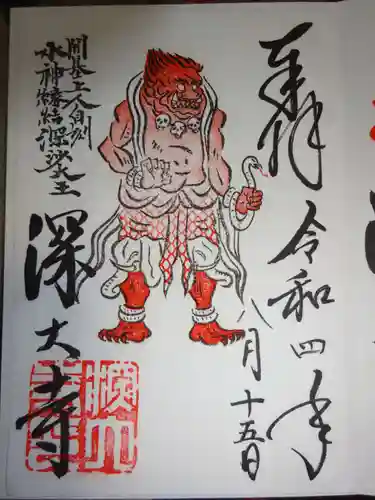 奉拝
令和四年
八月十五日
開基上人自刻
水神縁結深沙大王
深大寺